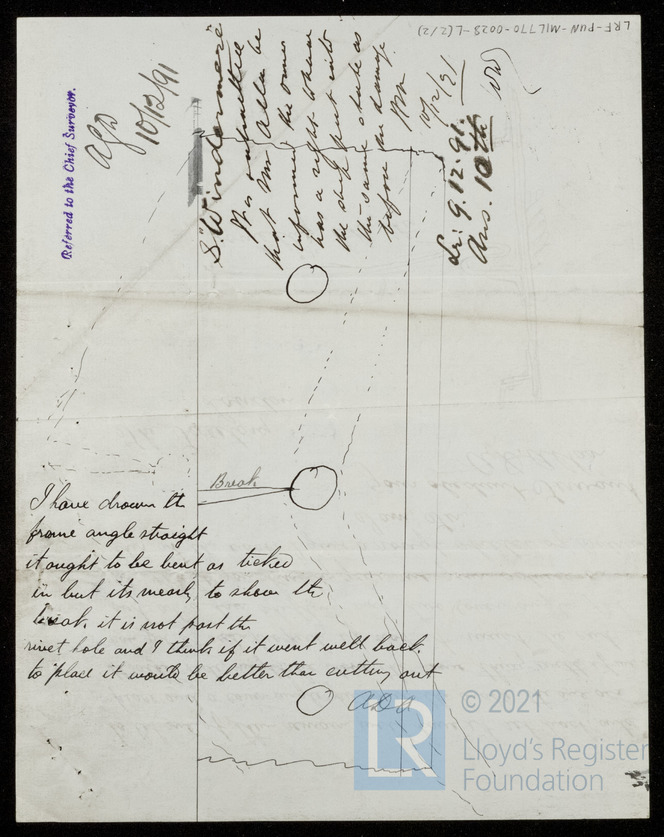 LRF-PUN-MIL770-0028-L(2/2)
Referred to the Chief Surveyor.
10/12/91
S. "Windermere"
It is submitted
that Mr Adda be
informed the owner
has a right to have
the ship put into
the same state as
before the damage
10/12/91
Lr: 9.12.91.
Ans. 10th
Break
I have drawn the
frame angle straight
it ought to be bent as ticked
in but its mearly to show the
break. it is not past the
rivet hole and I think if it went well back
to place it would be better than cutting out
ADA
© 2021
LR
Lloyd's Register
Foundation